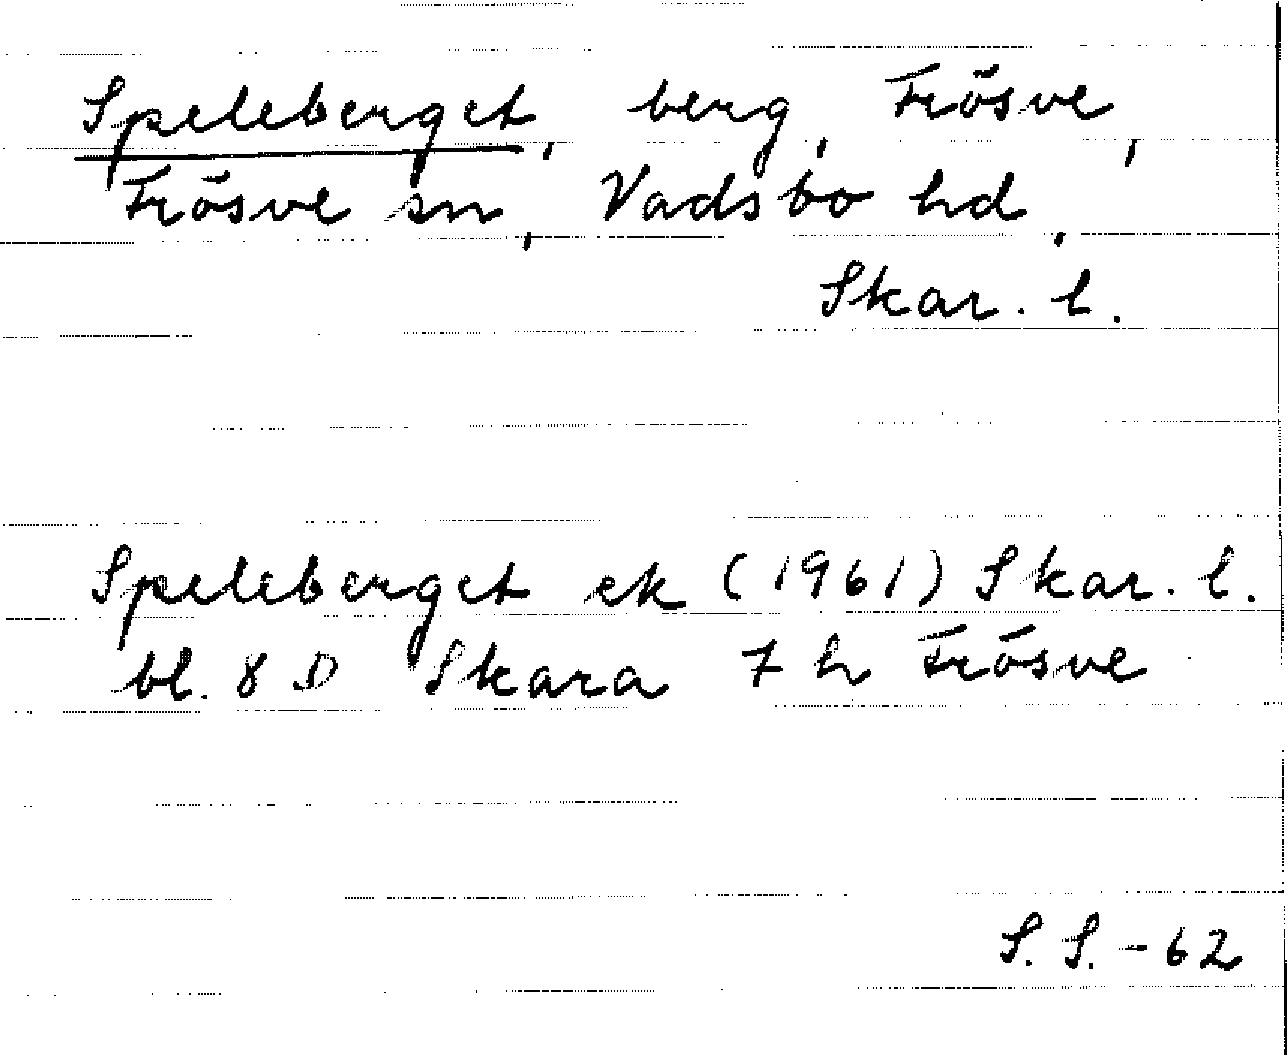 Speleberget, berg, Frösve,
Frösve sn, Vadsbo hd,
Skar. l.
Speleberget ek (1961) Skar. l.
bl. 8 D Skara 7 h Frösve
S. S. - 62